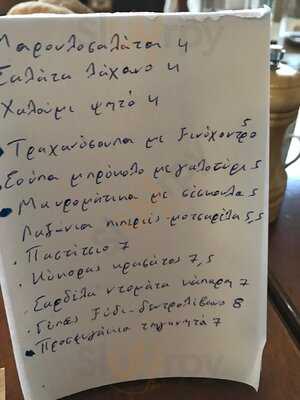 Μαρουλοσαλάτα 4
Σαλάτα λάχανο 4
Χαλούμι ψητό 4
Τραχανόσουπα με ξινόχοντρο 5
Σούπα μπρόκολο με γαλοτύρι 5
Μαυρομάτικα με σέσκουλα 5
Λαζάνια πιπεριές-μοτσαρέλα 5,5
Παστίτσιο 7
Κόκορας κρασάτος 7,5
Σαρδέλα ντομάτα κάπαρη 7
Γόπες ξύδι-δεντρολίβανο 8
Προσφυγάκια τηγανητά 7